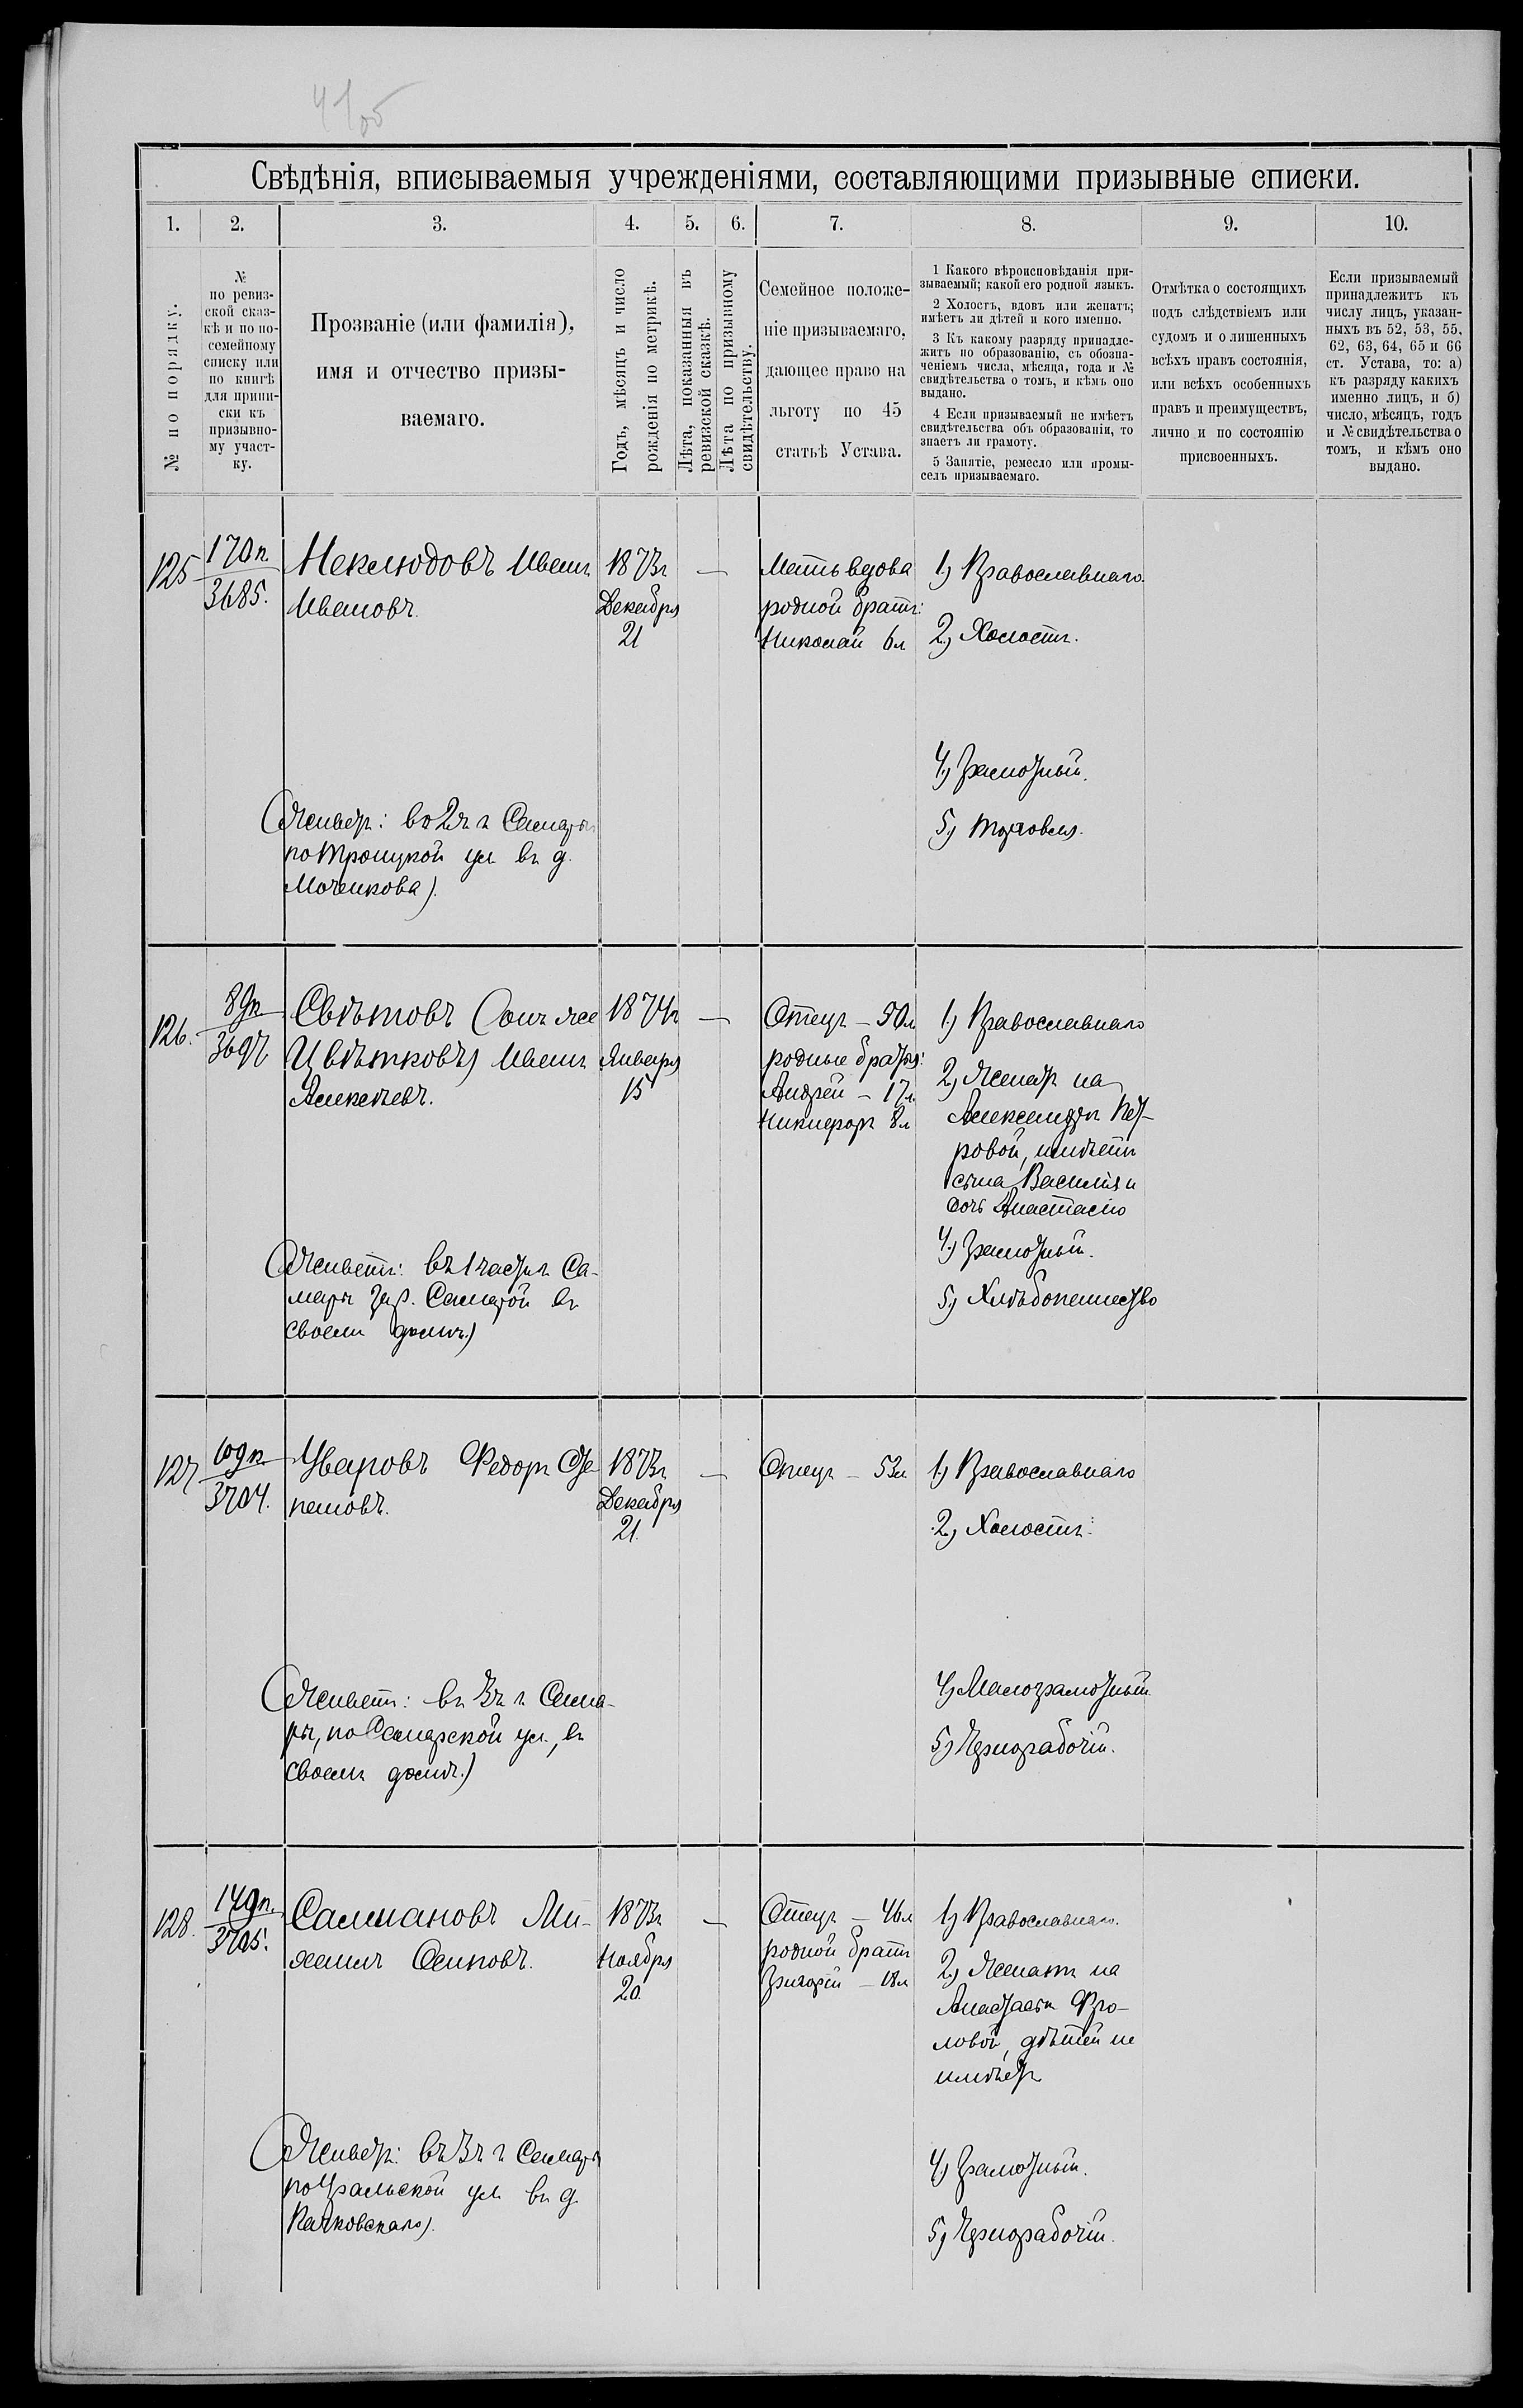 Свѣдѣнія, вписываемыя учрежденіями, составляющими призывные списки.
1. 2. 3. 4. 5. 6. 7. 8. 9. 10.
№ по порядку.
№
по ревиз-
ской сказ-
кѣ и по по-
семейному
списку или
по книгѣ
для припи-
ски къ
призывно-
му участ-
ку.
Прозваніе (или фамилія),
имя и отчество призы-
ваемаго.
Годъ, мѣсяцъ и число
рожденія по метрикѣ.
Лѣта, показанныя въ
ревизской сказкѣ.
Лѣта по призывному
свидѣтельству.
Семейное положе-
ніе призываемаго,
дающее право на
льготу по 45
статьѣ Устава.
1 Какого вѣроисповѣданія при-
зываемый; какой его родной языкъ.
2 Холостъ, вдовъ или женатъ;
имѣетъ ли дѣтей и кого именно.
3 Къ какому разряду принадле-
житъ по образованію, съ обозна-
ченіемъ числа, мѣсяца, года и №
свидѣтельства о томъ, и кѣмъ оно
выдано.
4 Если призываемый не имѣетъ
свидѣтельства объ образованіи, то
знаетъ ли грамоту.
5 Занятіе, ремесло или промы-
селъ призываемаго.
Отмѣтка о состоящихъ
подъ слѣдствіемъ или
судомъ и о лишенныхъ
всѣхъ правъ состоянія,
или всѣхъ особенныхъ
правъ и преимуществъ,
лично и по состоянію
присвоенныхъ.
Если призываемый
принадлежитъ къ
числу лицъ, указан-
ныхъ въ 52, 53, 55,
62, 63, 64, 65 и 66
ст. Устава, то: а)
къ разряду какихъ
именно лицъ, и б)
число, мѣсяцъ, годъ
и № свидѣтельства о
томъ, и кѣмъ оно
выдано.
125
170п
3685.
Неклюдовъ Иванъ
Ивановъ.
(Живетъ: во 2 ч г Самары
по Троицкой ул въ д.
Моченкова).
1873г
Декабря
21
—
Мать вдова
родной братъ:
Николай 6л
1) Православнаго.
2) Холостъ.
4) Грамотный.
5) Торговля.
126.
89п
3697
Свѣтовъ (онъ же
Цвѣтковъ) Иванъ
Алексѣевъ.
(Живетъ: въ 1 части г Са-
мары за р. Самарой въ
своемъ домѣ.)
1874г
Января
15
—
Отецъ – 50л
родные братья:
Андрей – 17л.
Никифоръ 8л
1) Православнаго
2) Женатъ на
Александрѣ Пет-
ровой, имѣетъ
сына Василія и
дочь Анастасію
4) Грамотный.
5) Хлѣбопашество
127
109п
3704.
Уваровъ Федоръ Сте
пановъ.
(Живетъ: въ 3 ч г Сама-
ры, по Самарской ул., въ
своемъ домѣ.)
1873г
Декабря
21.
—
Отецъ – 53л
1) Православнаго
2) Холостъ.
4) Малограмотный.
5) Чернорабочій.
128.
149п.
3705.
Салмановъ Ми-
хаилъ Осиповъ.
(Живетъ: въ 3 ч г Самары
по Уральской ул въ д.
Пачковскаго).
1873г
Ноября
20.
—
Отецъ – 46л
родной братъ
Григорій – 18л
1) Православнаго.
2) Женатъ на
Анастасіи Фро-
ловой, дѣтей не
имѣетъ
4) Грамотный.
5) Чернорабочій.